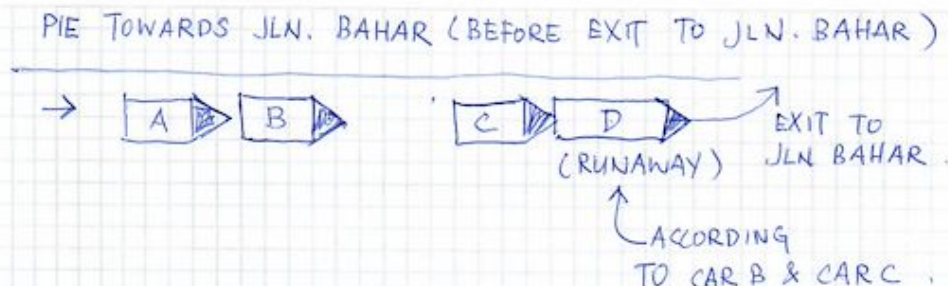 PIE TOWARDS JLN. BAHAR (BEFORE EXIT TO JLN. BAHAR)
A B C D
(RUNAWAY)
EXIT TO
JLN BAHAR.
ACCORDING
TO CAR B & CAR C.